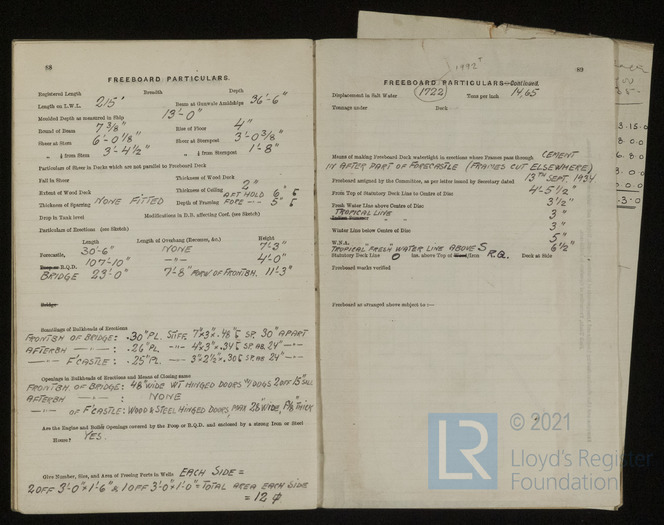 88
FREEBOARD PARTICULARS.
Registered Length Breadth Depth
Length on L.W.L. 215' Beam at Gunwale Amidships 36'-6"
Moulded Depth as measured in Ship 13'-0"
Round of Beam 7 3/8" Rise of Floor 4"
Sheer at Stem 6'-0 1/8" Sheer at Sternpost 3'-0 3/8"
" ¼ from Stem 3'-4 1/2" " ¼ from Sternpost 1'-8"
Particulars of Sheer in Decks which are not parallel to Freeboard Deck
Fall in Sheer Thickness of Wood Deck
Extent of Wood Deck Thickness of Ceiling 2"
Thickness of Sparring NONE FITTED Depth of Framing AFT HOLD 6"
FORE -- 5"
Drop in Tank level Modifications in D.B. affecting Coef. (see Sketch)
Particulars of Erections (see Sketch)
Length Length of Overhang (Excrescs, &c.) Height
Forecastle, 30'-6" NONE 7'-3"
Poop or R.Q.D. 107'-10" -"- 4'-0"
BRIDGE 23'-0" 7'-8" FORW OF FRONT BH. 11'-3"
Bridge
Scantlings of Bulkheads of Erections
FRONT BH OF BRIDGE: .30" PL. STIFF. 7"x3"x.48 SP. 30" APART
AFTER BH -"- : .26" PL. -"- 4"x3"x.34 SP. AB. 24" -"-
-"- F'CASTLE: .25" PL. -"- 3"x2½"x.30 SP. AB 24" -"-
Openings in Bulkheads of Erections and Means of Closing same
FRONT BH OF BRIDGE: 48" WIDE WT HINGED DOORS W/ DOGS 2 OFF 15" SILL
AFTER BH -"- : NONE
-"- OF F'CASTLE: WOOD & STEEL HINGED DOORS, MAX 28" WIDE, THICK
Are the Engine and Boiler Openings covered by the Poop or R.Q.D. and enclosed by a strong Iron or Steel
House? YES.
Give Number, Size, and Area of Freeing Ports in Wells EACH SIDE =
2 OFF 3'-0" x 1'-6" & 1 OFF 3'-0" x 1'-0" = TOTAL AREA EACH SIDE
= 12
1992
89
FREEBOARD PARTICULARS—Continued.
Displacement in Salt Water 1722 Tons per inch 14.65
Tonnage under Deck
Means of making Freeboard Deck watertight in erections where Frames pass through CEMENT
IN AFTER PART OF FORECASTLE (FRAMES CUT ELSEWHERE)
Freeboard assigned by the Committee, as per letter issued by Secretary dated 13TH SEPT. 1934
From Top of Statutory Deck Line to Centre of Disc 4'-5 1/2"
Fresh Water Line above Centre of Disc 3 1/2"
TROPICAL LINE " " 3"
Winter Line below Centre of Disc 3"
W.N.A. 5"
TROPICAL FRESH WATER LINE ABOVE S 6 1/2"
Statutory Deck Line 0 ins. above Top of Wood/Iron R.Q. Deck at Side
Freeboard marks verified
Freeboard as arranged above subject to :—
LR
© 2021
Lloyd's Register
Foundation